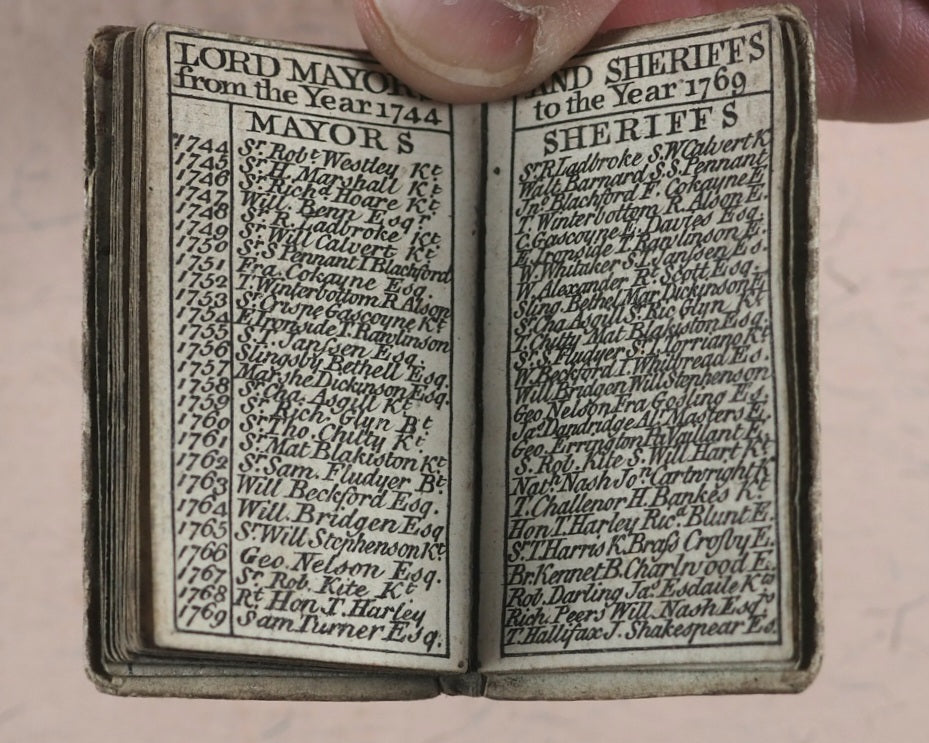 LORD MAYORS
from the Year 1744
MAYORS
1744 Sr. Robt Westley Kt
1745 Sr H. Marshall Kt
1746 Sr Richd Hoare Kt
1747 Will. Benn Esqr
1748 Sr R. Ladbroke Kt
1749 Sr Will Calvert Kt
1750 Sr S Pennant I Blachford
1751 Fra. Cokayne Esq.
1752 T. Winterbottom R Alson
1753 Sr Crispe Gascoyne Kt
1754 E Ironside T. Rawlinson
1755 S. T. Janſsen Esq.
1756 Slingsby Bethell Esq.
1757 Marshe Dickinson Esq.
1758 Sr Cha. Asgill Kt
1759 Sr Richd Glyn Bt
1760 Sr Tho. Chitty Kt
1761 Sr Mat Blakiston Kt
1762 Sr. Sam. Fludyer Bt
1763 Will Beckford Esq.
1764 Will. Bridgen Esq
1765 Sr Will Stephenson Kt
1766 Geo. Nelson Esq.
1767 Sr. Rob. Kite Kt
1768 Rt Hon T. Harley
1769 Sam Turner Esq.
AND SHERIFFS
to the Year 1769
SHERIFFS
Sr R Ladbroke S. W Calvert K
Walt Barnard S. S. Pennant
Jno Blachford F. Cokayne E.
T. Winterbottom R. Alson E.
C. Gascoyne E. Davies Esq.
E. Ironside T. Rawlinson E.
W. Whitaker S. T. Janſsen Es.
W. Alexander Rt Scott Esq.
Sling. Bethel Mar. Dickinson E
Sr Cha Asgill Sr Ric Glyn Kt
T. Chitty Mat Blakiston Esq.
Sr S. Fludyer S. I. Torriano Kt
W. Beckford I. Whitbread Es.
Will Bridgen Will Stephenson
Geo Nelson Fra Gosling Es.
Jas Dandridge Al. Masters E.
Geo. Errington Pl Vaillant E.
S. Rob. Kite S. Will. Hart Kt
Nathl Nash Jon Cartwright K
T. Challenor H. Bankes Kt
Hon T. Harley Ricd Blunt E.
Sr. T. Harris K. Braſs Crosby E.
Br. Kennet B. Charlwood E.
Rob. Darling Jas Esdaile Kts
Rich. Peers Will Nash Esqrs
T. Hallifax J. Shakespear Es